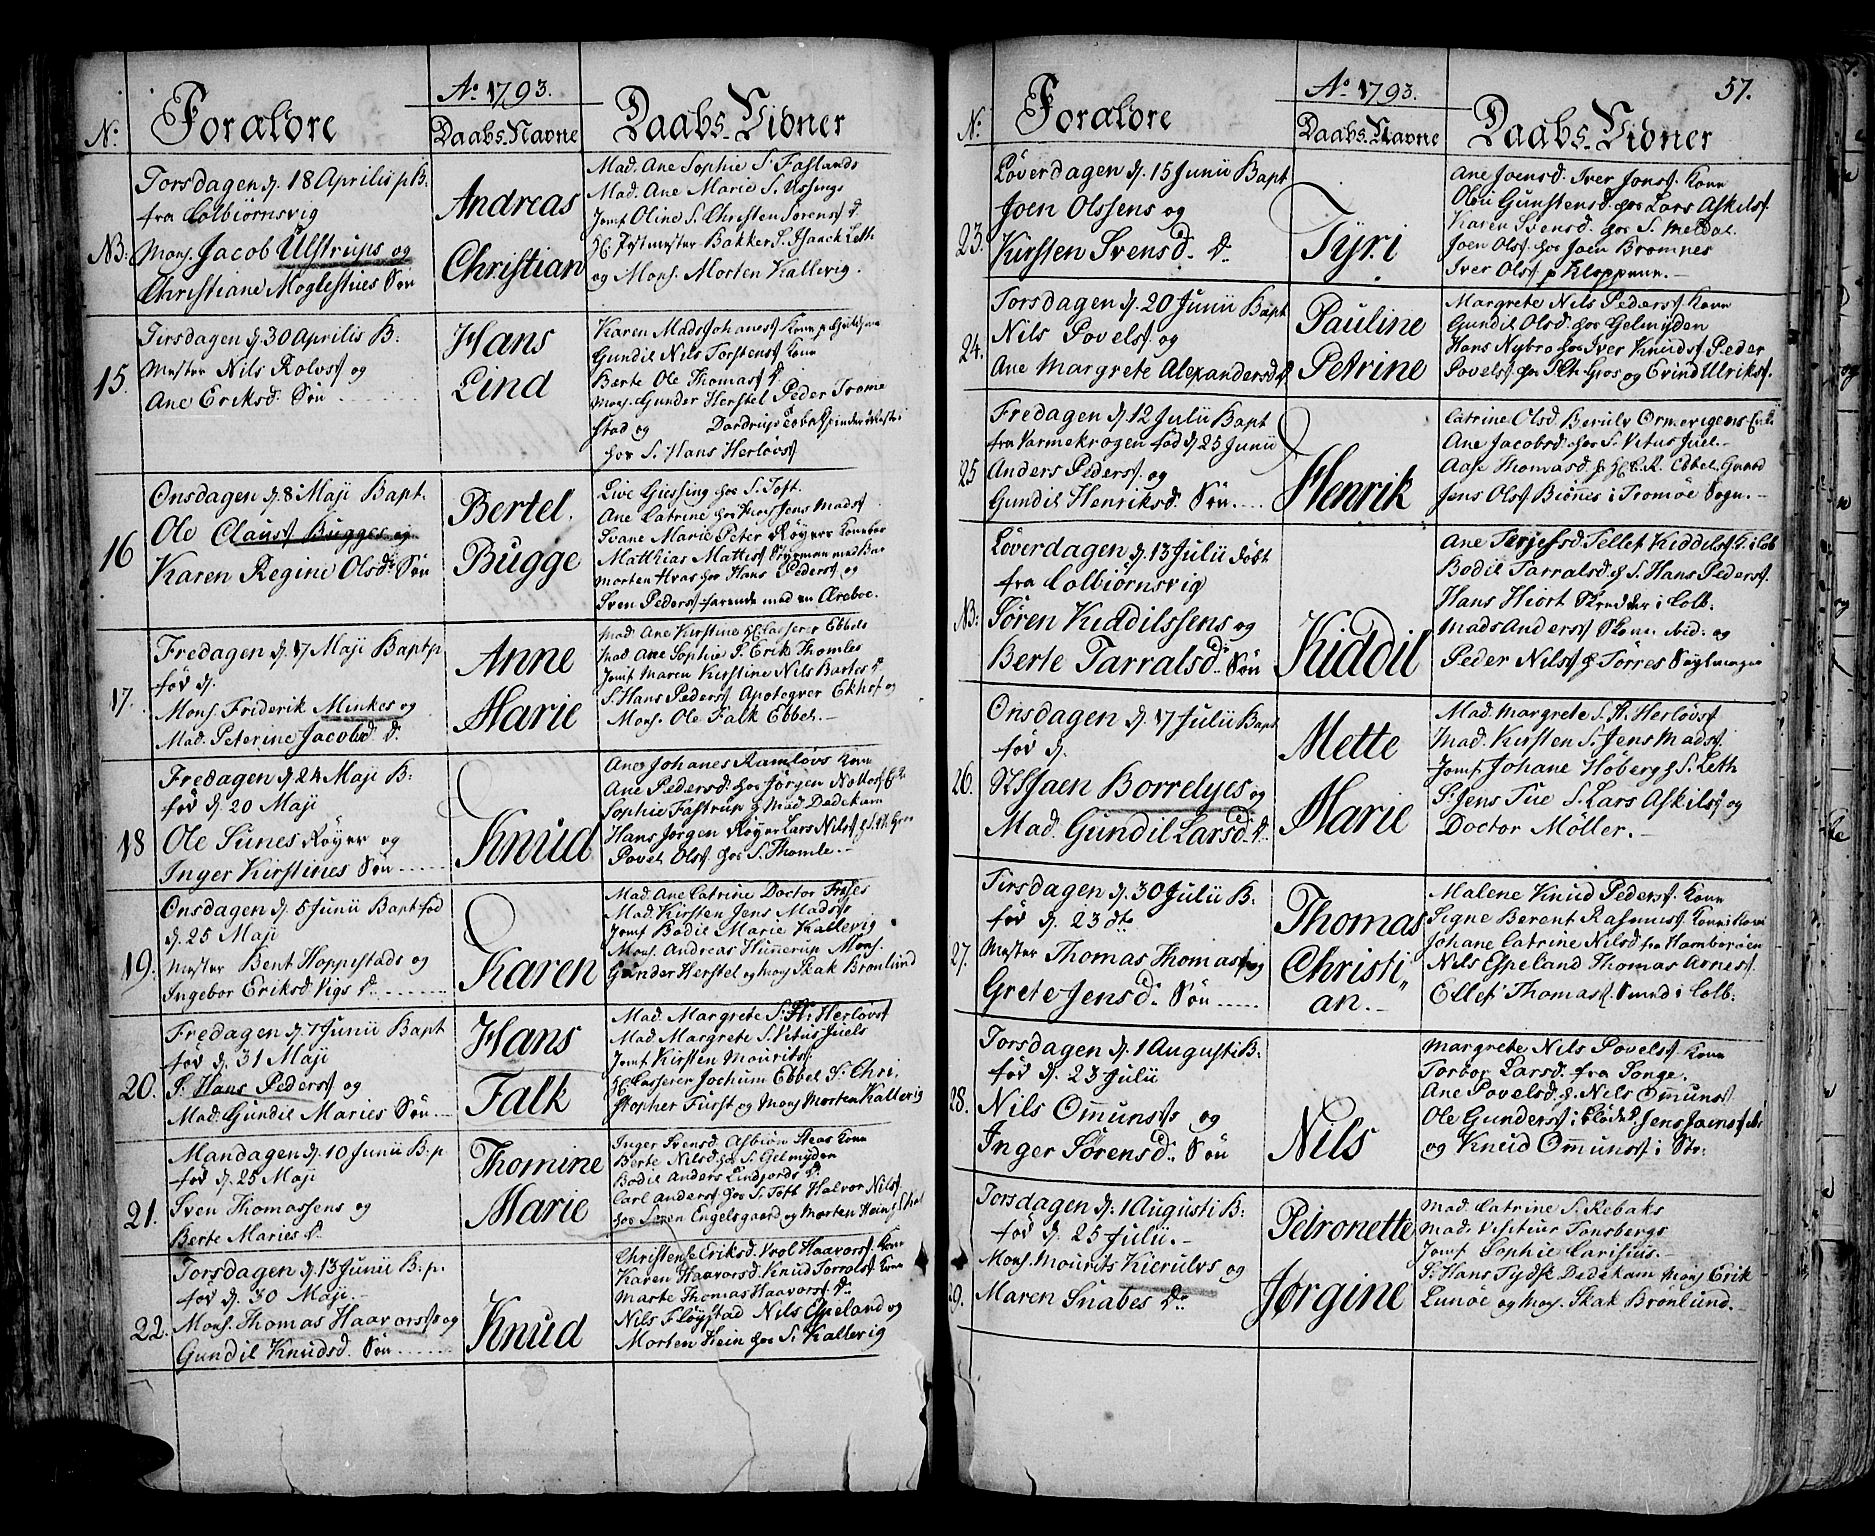 Aº 1793.
Nº Forældre Daabs-Navne Daabs-Vidner
Torsdagen d. 18 Aprilis p B.
fra Colbiørnsvig
NB. Mons. Jacob Ulstrups og
Christiane Moglestues Søn
Andreas
Christian
Mad. Ane Sophie S. Faslands
Mad. Ane Marie S. Ussings
Jomf Oline S. Christen Sørens D.
Postmester Bakker S. Isaack Leth
og Mons. Morten Kallevig.
15. Tirsdagen d. 30 Aprilis B.
Mester Nils Rolvs og
Ane Eriksd. Søn
Hans
Lind
Karen Mads Johanes Kone p
Gundil Nils Torstens Kone
Berte Ole Thomas D.
Mons. Gunder Herstel Peder Trome
stad og
hos S. Hans Herløvs
16 Onsdagen d. 8 Maji Bapt.
Ole Claus Bugges og
Karen Regine Olsd. Søn
Bertel.
Bugge
Live Giessing hos S. Toft.
Ane Catrine hos Jens Mads
Svane Marie Peter Røyers Kone
Matthias Mattes Styrmand med
Morten Hvas hos Hans Peders og
Sven Peders farende med en Æreboe.
17. Fredagen d. 17 Maji Bapt p
fød d.
Mons. Friderik Minkes og
Mad. Peterine Jacobsd. D.
Anne
Marie
Mad. Ane Kirstine Casserer Ebbels
Mad Ane Sophie S. Erik Thomles
Jomf Maren Kirstine Nils Bartes D
S. Hans Peders Apoteqver Ekhof og
Mons. Ole Falk Ebbel.
18 Fredagen d. 24 Maji B.
fød d. 20 Maji
Ole Sunes Røyer og
Inger Kirstines Søn
Knud
Ane Johanes Ramløvs Kone
Ane Pedersd. hos Jørgen Nottos
Sophie Fastrup Mad Dedekam
Hans Jørgen Røyer Lars Nils
Povel Ols hos S. Thomle.
19. Onsdagen d. 5 Junii Bapt fød
d. 25 Maji
Mester Bent Hoppestads og
Ingebor Eriksd Vigs D.
Karen
Mad. Ane Catrine Doctor
Mad. Kirsten Jens Mads
Jomf Bodil Marie Kallevig
Mons. Andreas Hunnerup Mons.
Gunder Herstel og Mons Skak Brønlund
20. Fredagen d. 7 Junii Bapt
fød d. 31 Maji
S. Hans Peders og
Mad. Gundil Maries Søn
Hans
Falk
Mad. Margrete S. Herløvs
Mad. Margrete S. Vitus Juels
Jomf Kirsten Mourits
Casserer Jochum Ebbel S. Chri,
stopher Furst og Mons Morten Kallevig
21. Mandagen d. 10 Junii B. p
fød d. 25 Maji
Sven Thomassens og
Berte Maries D.
Thomine
Marie
Inger Svensd. Asbiøn Kone
Berte Nilsd hos S. Gelmyden
Bodil Anders Lindfords D.
Carl Anders hos S. Toft Halvor Nils
hos Søren Engelsgaard og Morten Hein
22. Torsdagen d. 13 Junii B. p.
fød d. 30 Maji.
Mons. Thomas Haavors og
Gundil Knudsd. Søn
Knud
Christense Eriksd. Vrol Haavors Kone
Karen Haavorsd. Knud Torrals Kone
Marte Thomas Haavors D.
Nils Fløystad Nils Espeland og
Morten Hein hos S. Kallevig
57.
Aº 1793.
Nº Forældre Daabs-Navne Daabs-Vidner
23. Løverdagen d. 15 Junii Bapt
Joen Olssens og
Kirsten Svensd. D.
Tyri
Ane Joensd. Iver Jons Kone
Olin Gunstensd. hos Lars Askils
Karen Svensd. hos S. Meldal
Joen Ols hos Joen Bromnes
Iver Ols p Kloppene.
24. Torsdagen d. 20 Junii Bapt
Nils Povels og
Ane Margrete Alexandersd D.
Pauline
Petrine
Margrete Nils Peders Kone
Gundil Olsd hos Gelmyden
Hans Nybro hos Iver Knuds Peder
Povels hos og Evind Ulriks.
25 Fredagen d. 12 Julii Bapt
fra Varmekrogen fød d. 25 Junii
Anders Peders og
Gundil Henriksd. Søn
Henrik
Catrine Olsd. Berulv Ornevigens
Ane Jacobsd. hos S. Vitus Juel.
Aase Thomasd. Ebbel Gund
Jens Ols Biønes i Tromøe Sogn.
Løverdagen d. 13 Julii Døbt
fra Colbiørnsvig
NB: Søren Kiddilssens og
Berte Tarralsd. Søn
Kiddil
Ane Terjesd. Tellef Kiddils K. i Colb
Bodil Tarralsd. S. Hans Peders
Hans Hiort Skredder i Colb:
Mads Anders Skone ibid: og
Peder Nils Torres Søylmager
26. Onsdagen d. 17 Julii Bapt
fød d.
Staen Borrelyes og
Mad. Gundil Larsd. D.
Mette
Marie
Mad. Margrete S. H. Herløvs
Mad. Kirsten S. Jens Mads
Jomf Johane Høberg S. Leth
S. Jens Tue S. Lars Askils og
Doctor Møller.
27. Tirsdagen d. 30 Julii B.
fød d. 23 dto
Mester Thomas Thomas og
Grete Jensd. Søn
Thomas
Christi,,
an.
Malene Knud Peders Kone
Signe Berent Rasmus Kone
Johane Catrine Nilsd fra Hamborøen
Nils Espeland Thomas Arnes
Ellef Thomas Sund i Colb:
28. Torsdagen d. 1 Augusti B:
fød d. 23 Julii
Nils Omunds og
Inger Sørensd. Søn
Nils
Margrete Nils Povels Kone
Torbor Larsd. fra Songe.
Ane Povelsd. Nils Omuns
Ole Gunders i Jens Joens
og Knud Omuns i
29. Torsdagen d. 1 Augusti B:
fød d. 25 Julii.
Mons. Mourits Kierulvs og
Maren Snabes D.
Petronette
Jørgine
Mad. Catrine S. Rebaks
Mad. Tønsbergs
Jomf Sophie Carisius.
S. Hans Tydsk Dedekam Mons Erik
Lunøe og Mons. Skak Brønlund.